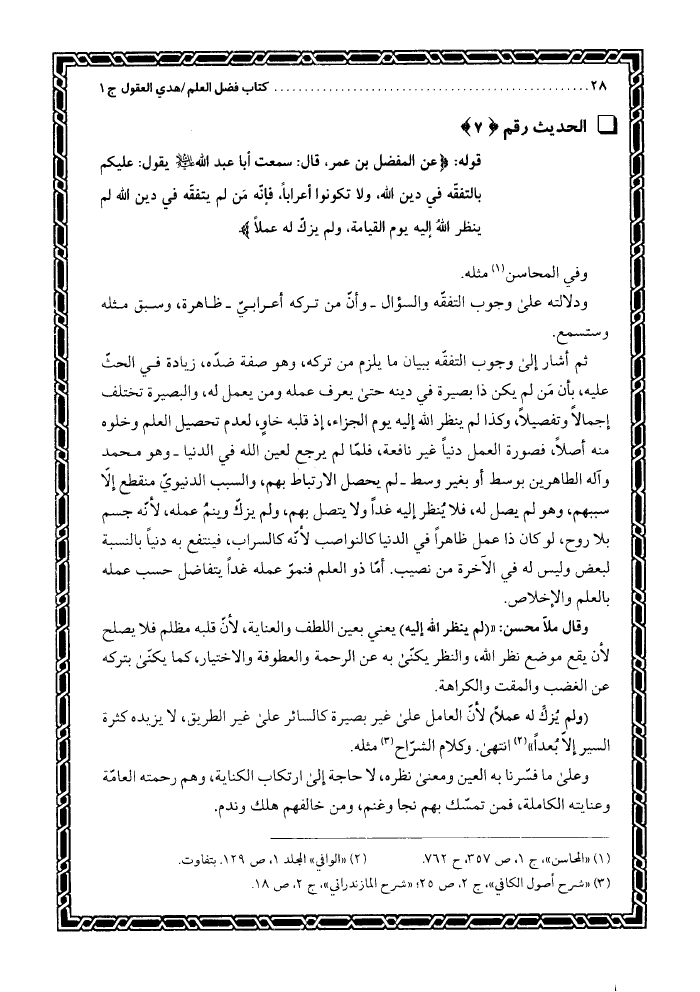 ٢٨ ............................................................ كتاب فضل العلم/هدي العقول ج ١
❑ الحديث رقم ﴿ ٧ ﴾
قوله: ﴿عن المفضل بن عمر، قال: سمعت أبا عبد الله ﷺ يقول: عليكم
بالتفقّه في دين الله، ولا تكونوا أعراباً، فإنّه مَن لم يتفقّه في دين الله لم
ينظر اللهُ إليه يوم القيامة، ولم يزكّ له عملاً﴾.
وفي المحاسن(١) مثله.
ودلالته علىٰ وجوب التفقّه والسؤال ـ وأنّ من تركه أعرابيّ ـ ظاهرة، وسبق مثله
وستسمع.
ثم أشار إلىٰ وجوب التفقّه ببيان ما يلزم من تركه، وهو صفة ضدّه، زيادة في الحثّ
عليه، بأن مَن لم يكن ذا بصيرة في دينه حتىٰ يعرف عمله ومن يعمل له، والبصيرة تختلف
إجمالاً وتفصيلاً، وكذا لم ينظر الله إليه يوم الجزاء، إذ قلبه خاوٍ، لعدم تحصيل العلم وخلوه
منه أصلاً، فصورة العمل دنياً غير نافعة، فلمّا لم يرجع لعين الله في الدنيا ـ وهو محمد
وآله الطاهرين بوسط أو بغير وسط ـ لم يحصل الارتباط بهم، والسبب الدنيويّ منقطع إلّا
سببهم، وهو لم يصل له، فلا يُنظر إليه غداً ولا يتصل بهم، ولم يزكّ وينمُ عمله، لأنّه جسم
بلا روح، لو كان ذا عمل ظاهراً في الدنيا كالنواصب لأنّه كالسراب، فينتفع به دنياً بالنسبة
لبعض وليس له في الآخرة من نصيب. أمّا ذو العلم فنموّ عمله غداً يتفاضل حسب عمله
بالعلم والإخلاص.
وقال ملّا محسن: «(لم ينظر الله إليه) يعني بعين اللطف والعناية، لأنّ قلبه مظلم فلا يصلح
لأن يقع موضع نظر الله، والنظر يكنّىٰ به عن الرحمة والعطوفة والاختيار، كما يكنّىٰ بتركه
عن الغضب والمقت والكراهة.
(ولم يُزكِّ له عملاً) لأنّ العامل علىٰ غير بصيرة كالسائر علىٰ غير الطريق، لا يزيده كثرة
السير إلّا بُعداً»(٢) انتهىٰ. وكلام الشرّاح(٣) مثله.
وعلىٰ ما فسّرنا به العين ومعنىٰ نظره، لا حاجة إلىٰ ارتكاب الكناية، وهم رحمته العامّة
وعنايته الكاملة، فمن تمسّك بهم نجا وغنم، ومن خالفهم هلك وندم.
(١) «المحاسن»، ج ١، ص ٣٥٧، ح ٧٦٢. (٢) «الوافي» المجلد ١، ص ١٢٩. بتفاوت.
(٣) «شرح أصول الكافي»، ج ٢، ص ٢٥؛ «شرح المازندراني»، ج ٢، ص ١٨.